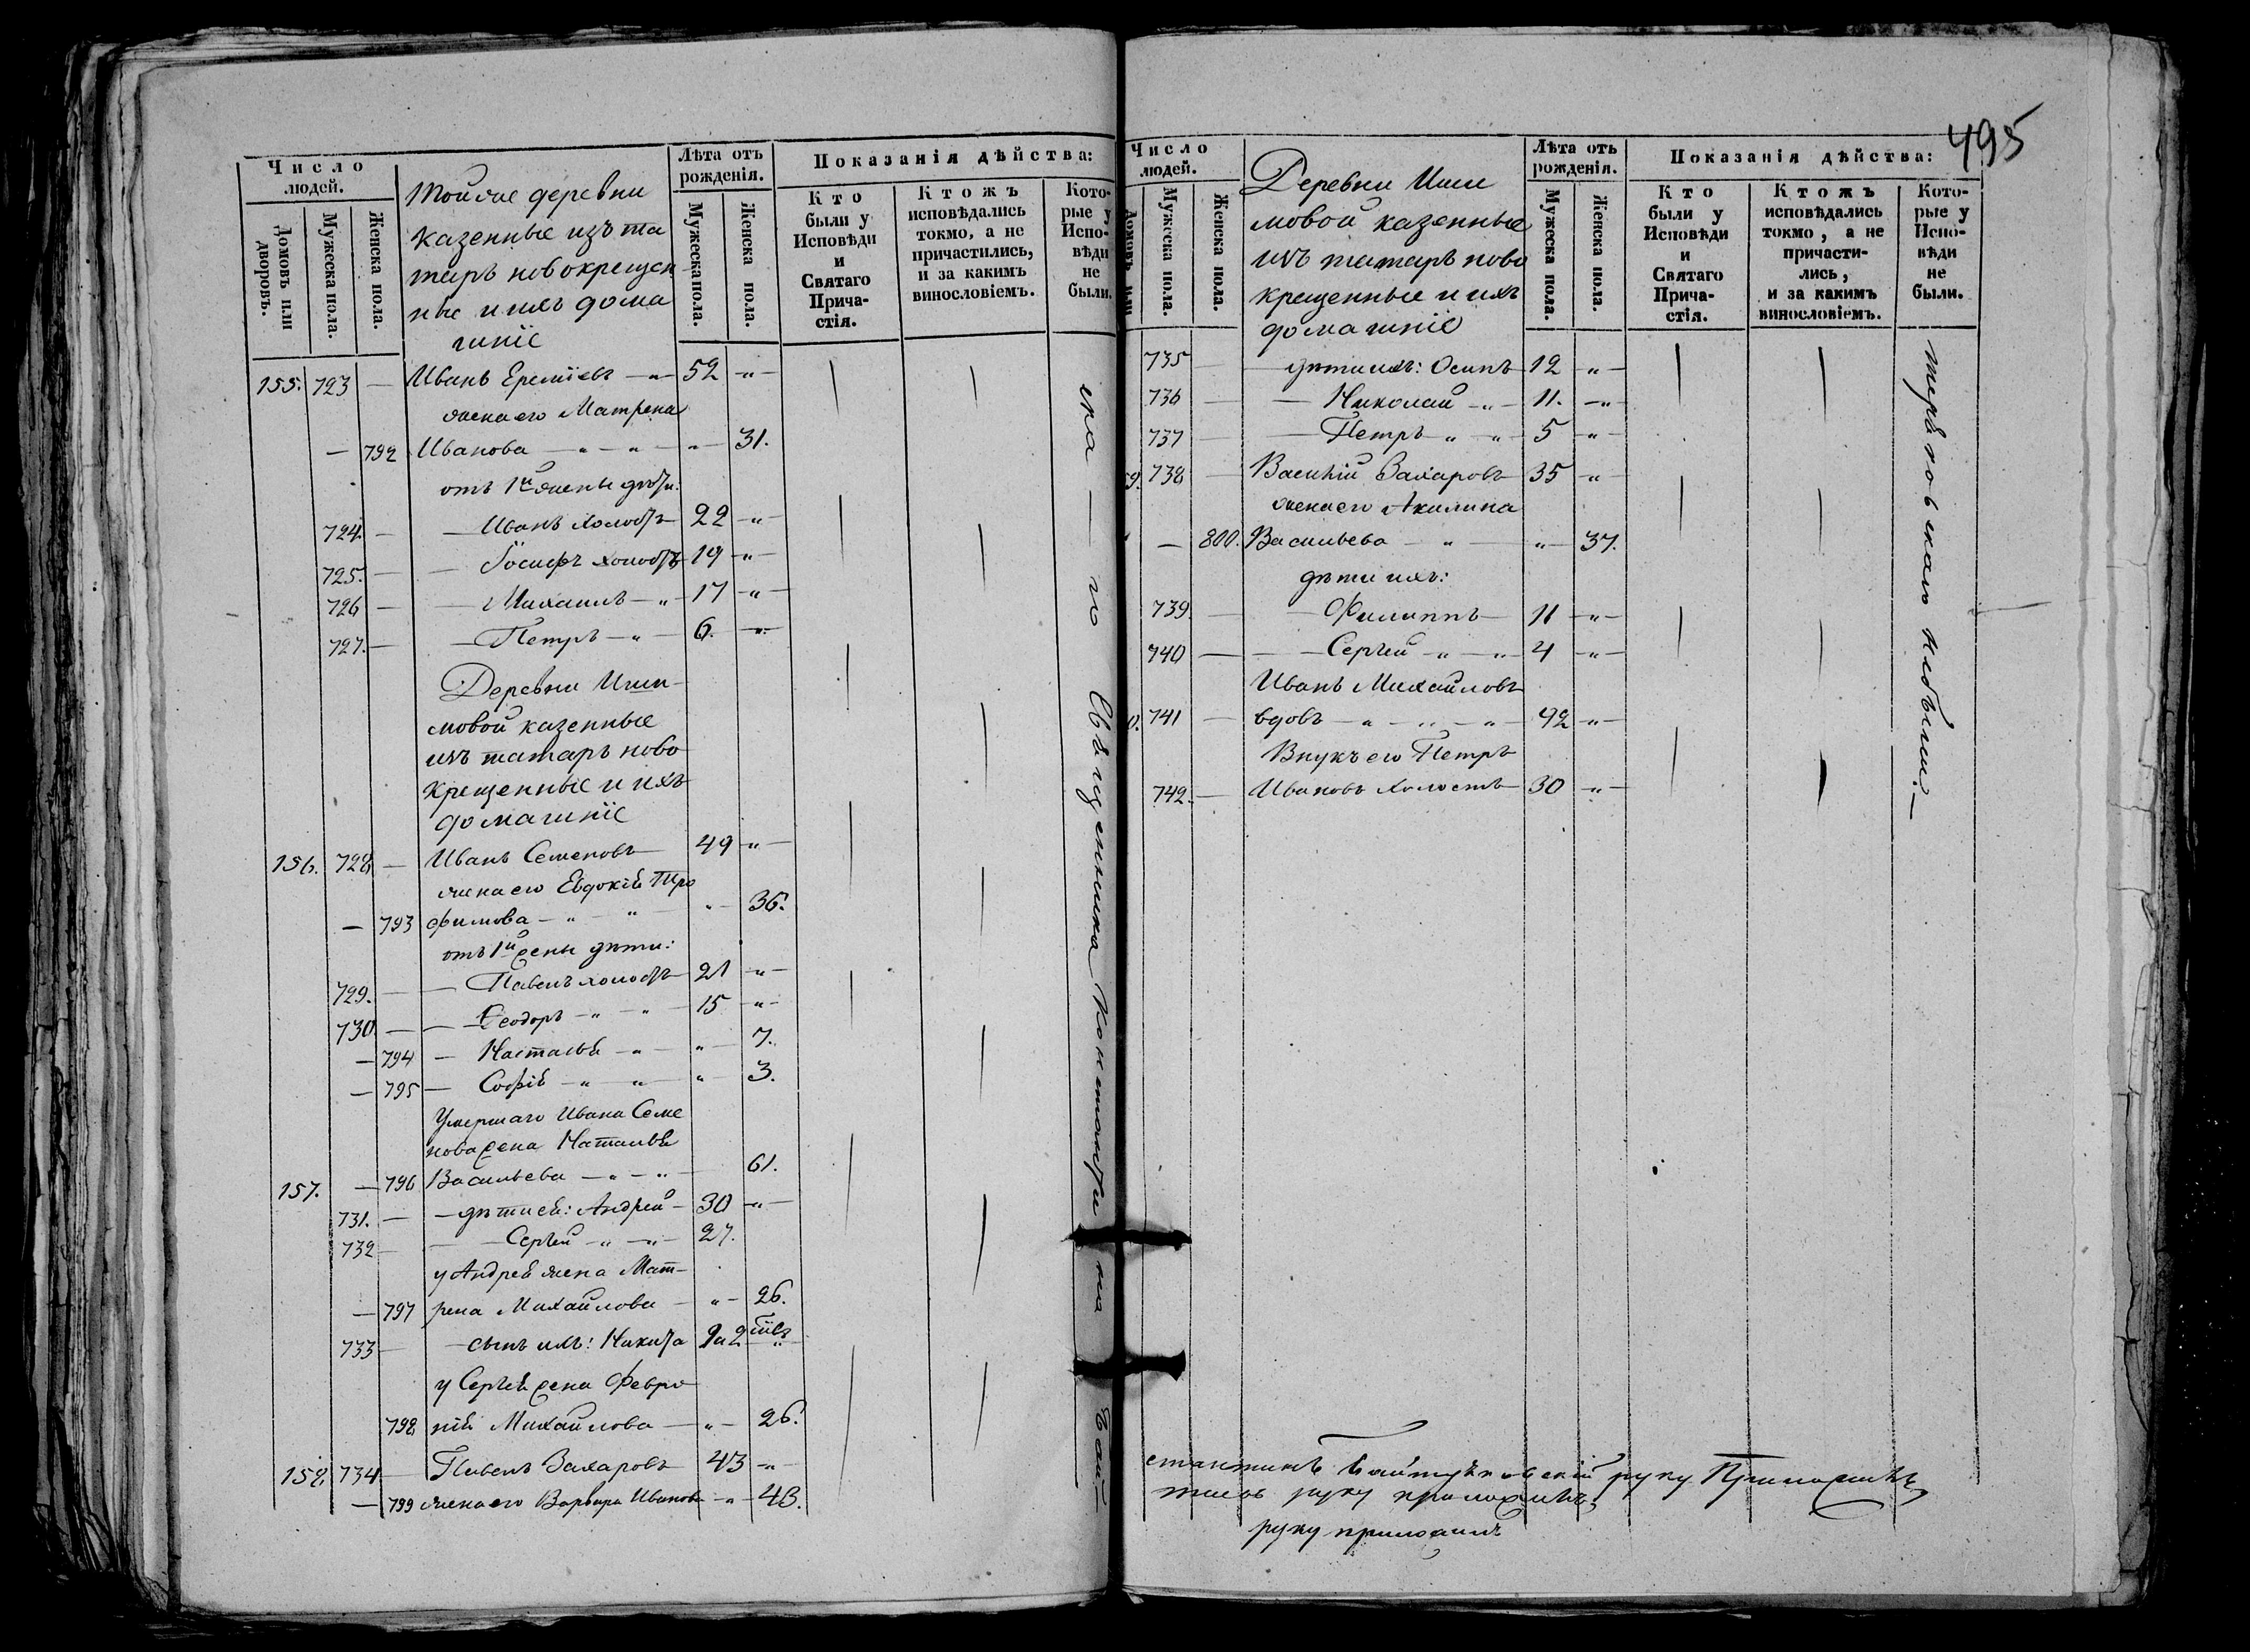 495
Число людей.
Домовъ или дворовъ.
Мужеска пола.
Женска пола.
Тойже деревни
казенные изъ та
таръ новокрещен
ные и ихъ дома
шніе
Лѣта отъ рожденія.
Мужеска пола.
Женска пола.
Показанія дѣйства:
Кто были у Исповѣди и Святаго Прича- стія.
Ктожъ исповѣдались токмо, а не причастились, и за какимъ винословіемъ.
Кото- рые у Испо- вѣди не были.
155. 723 — Иванъ Ереміевъ — „ 52 „ —
жена его Матрена
— 792 Иванова — „ — „ — „ — 31.
отъ 1й жены дѣти:
724. — — Иванъ холостъ 22 — „ —
725. — — Іосифъ холостъ 19 — „ —
726 — — Михаилъ — „ 17 — „ —
727. — — Петръ — „ — 6. — „ —
Деревни Иши-
мовой казенные
изъ татаръ ново
крещенные и ихъ
домашніе
156. 728. — Иванъ Семеновъ 49 „ —
жена его Евдокія Тро
— 793 фимова — „ — „ — „ — 36.
отъ 1й жены дѣти:
729. — — Павелъ холостъ 21 — „ —
730. — — Ѳеодоръ — „ — „ 15 — „ —
— 794 — Наталья — „ — „ — 7.
— 795 — Софія — „ — „ — „ 3.
Умершаго Ивана Семе
нова жена Наталья
157. — 796 Васильева — „ — „ 61.
731. — — дѣти ея: Андрей — 30 — „ —
732 — — Сергѣй — „ — „ — 27.
у Андрея жена Мат-
— 797 рена Михайлова — „ — 26.
733 — — сынъ ихъ: Никита
у Сергѣя жена Февро
798. нія Михайлова — „ — 26.
158. 734 — Павелъ Захаровъ 43 — „ —
— 799 жена его Варвара Иванова — „ — 43.
Священника Константи на Бай
Число людей.
Домовъ или
Мужеска пола.
Женска пола.
Деревни Иши
мовой казенные
изъ татаръ ново
крещенные и ихъ
домашніе
Лѣта отъ рожденія.
Мужеска пола.
Женска пола.
Показанія дѣйства:
Кто были у Исповѣди и Святаго Прича- стія.
Ктожъ исповѣдались токмо, а не причасти- лись, и за какимъ винословіемъ.
Кото- рые у Испо- вѣди не были.
735 — дѣти ихъ: Осипъ 12 — „ —
736 — — Николай — „ — 11. — „
737 — — Петръ — „ — „ — 5 — „ —
9. 738 — Василій Захаровъ 35 — „ —
жена его Акилина
— 800. Васильева — „ — „ — 37.
дѣти ихъ:
739. — — Филиппъ — 11 — „ —
740 — — Сергѣй — „ — „ 4 — „ —
Иванъ Михайловъ
0. 741 — вдовъ — „ — „ — „ — 92 — „ —
Внукъ его Петръ
742. — Ивановъ холостъ 30 — „ —
стантинъ Баитеряковскій руку Приложилъ
руку приложилъ
руку приложилъ